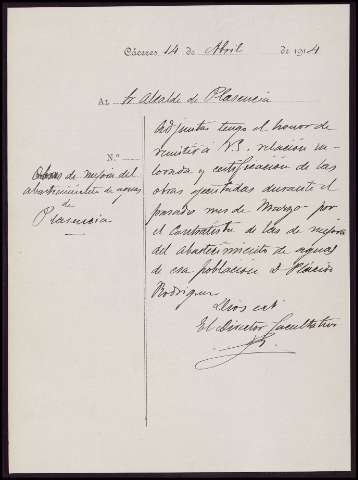 Cáceres 14 de Abril de 1914
Al Sr Alcalde de Plasencia
N.º
Obras de mejora del
abastecimiento de aguas
de
Plasencia
Adjuntas tengo el honor de
remitir á V.S. relación va-
lorada y certificación de las
obras ejecutadas durante el
pasado mes de Marzo por
el Contratista de las de mejora
del abastecimiento de aguas
de esa población D. Plácido
Rodriguez
Dios etc
El Director facultativo